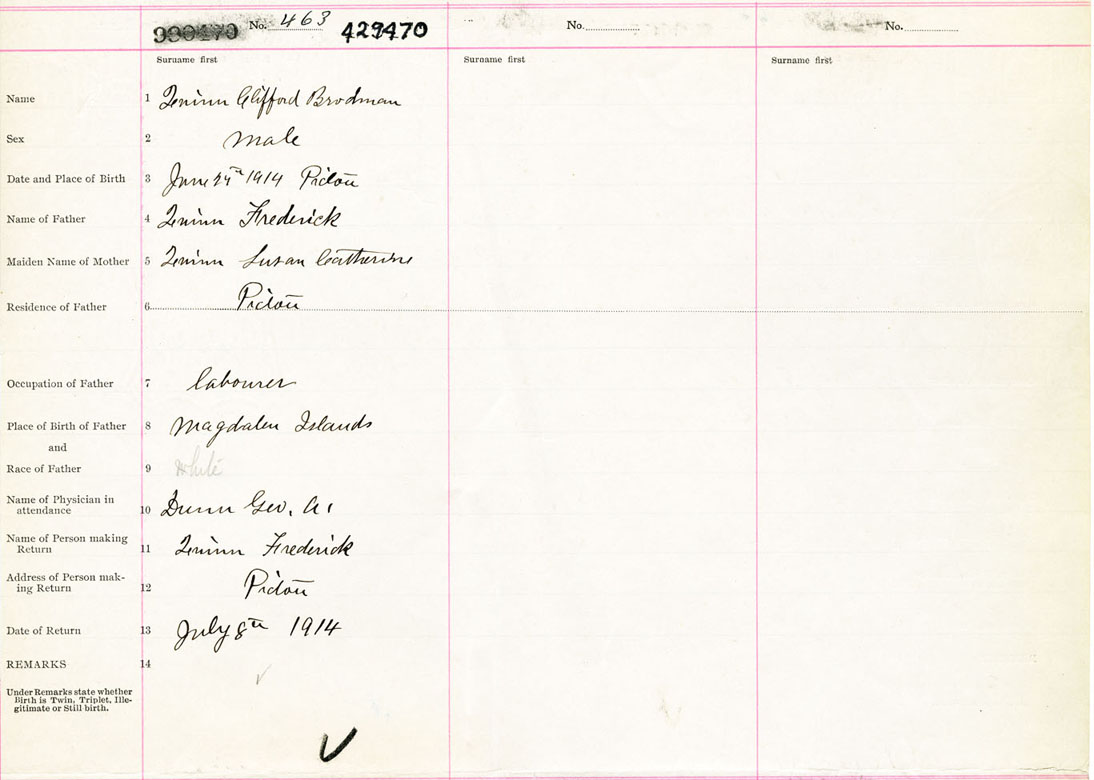 No. 463 429470 No. No.
Surname first Surname first Surname first
Name 1 Quinn Clifford Brodman
Sex 2 male
Date and Place of Birth 3 June 24th 1914 Pictou
Name of Father 4 Quinn Frederick
Maiden Name of Mother 5 Quinn Susan Catherine
Residence of Father 6 Pictou
Occupation of Father 7 labourer
Place of Birth of Father 8 Magdalen Islands
and
Race of Father 9 White
Name of Physician in
attendance 10 Dunn Geo. A.
Name of Person making
Return 11 Quinn Frederick
Address of Person mak-
ing Return 12 Pictou
Date of Return 13 July 8th 1914
REMARKS 14
Under Remarks state whether
Birth is Twin, Triplet, Ille-
gitimate or Still birth.